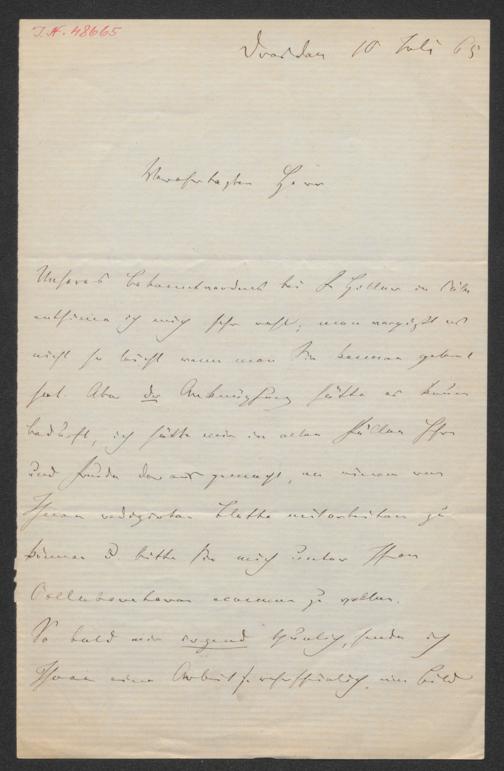 I.N. 48665
Dresden 10 Juli 65
Verehrtester Herr
Unseres Bekanntwerdens bei F Hiller in Köln
entsinne ich mich sehr wohl; man vergißt es
nicht so leicht wenn man Sie kennen gelernt
hat. Aber der Anknüpfung hätte es kaum
bedurft, ich hätte mir in allen Fällen Ehre
und Freude daraus gemacht, an einem von
Ihnen redigirten Blatte mitarbeiten zu
können & bitte Sie mich unter Ihren
Collaborateuren nennen zu wollen.
So bald mir irgend thunlich, sende ich
Ihnen eine Arbeit, wahrscheinlich ein Bild